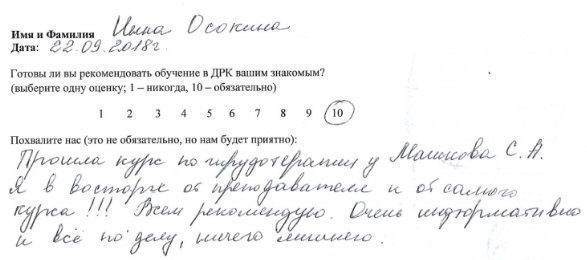 Имя и Фамилия Инна Осокина
Дата: 22.09.2018г.
Готовы ли вы рекомендовать обучение в ДРК вашим знакомым?
(выберите одну оценку; 1 – никогда, 10 – обязательно)
1 2 3 4 5 6 7 8 9 10
Похвалите нас (это не обязательно, но нам будет приятно):
Прошла курс по гирудотерапии у Машкова С.А.
Я в восторге от преподавателя и от самого
курса!!! Всем рекомендую. Очень информативно
и всё по делу, ничего лишнего.